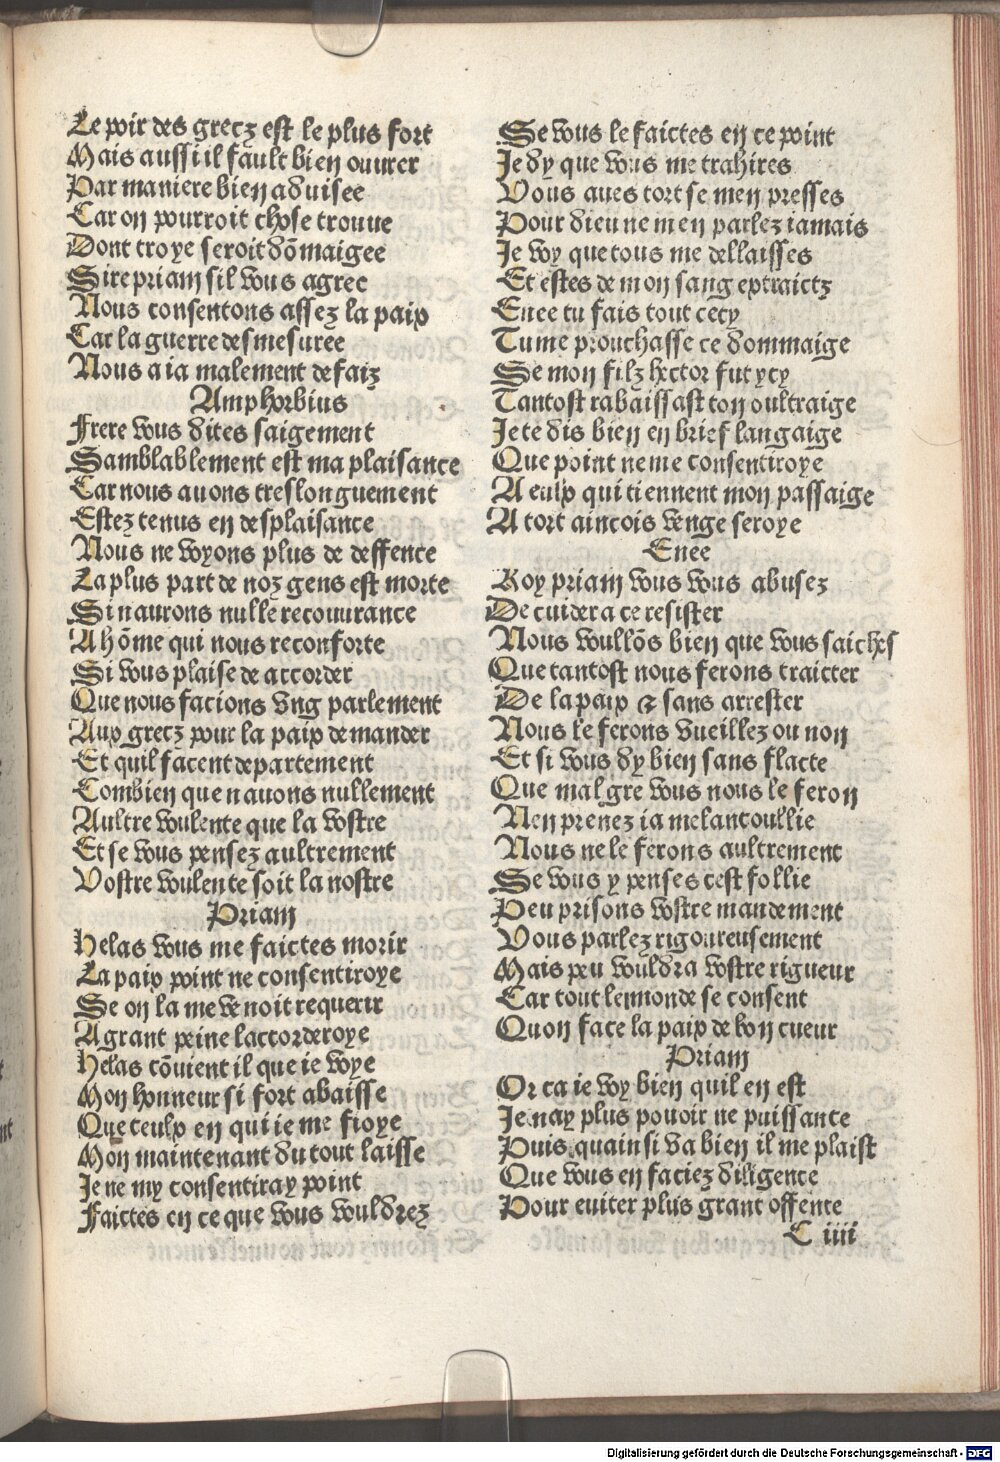 Le poir des grecz est le plus fort
Mais aussi il fault bien ouurer
Par maniere bien aduisee
Car on pourroit chose trouue
Dont troye seroit dõmaigee
Sire priam sil vous agree
Nous consentons assez la paix
Car la guerre desmesuree
Nous a ia malement defaiz
Amphorbius
Frere vous dites saigement
Samblablement est ma plaisance
Car nous auons treslonguement
Estez tenus en desplaisance
Nous ne voyons plus de deffence
La plus part de noz gens est morte
Si naurons nulle recouurance
A hõme qui nous reconforte
Si vous plaise de accorder
Que nous facions vng parlement
Aux grecz pour la paix demander
Et quil facent departement
Combien que nauons nullement
Aultre voulente que la vostre
Et se vous pensez aultrement
Vostre voulente soit la nostre
Priam
Helas vous me faictes morir
La paix point ne consentiroye
Se on la me venoit requerir
A grant peine laccorderoye
Helas cõuient il que ie voye
Mon honneur si fort abaisse
Que ceulx en qui ie me fioye
Mon maintenant du tout laisse
Je ne my consentiray point
Faictes en ce que vous vouldrez
Se vous le faictes en ce point
Je dy que vous me trahires
Vous aues tort se men presses
Pour dieu ne men parlez iamais
Je voy que tous me dellaisses
Et estes de mon sang extraictz
Enee tu fais tout cecy
Tu me prouchasse ce dommaige
Se mon filz hector fut ycy
Tantost rabaissast ton oultraige
Je te dis bien en brief langaige
Que point ne me consentiroye
A eulx qui tiennent mon passaige
A tort aincois venge seroye
Enee
Roy priam vous vous abusez
De cuider a ce resister
Nous voullõs bien que vous saiches
Que tantost nous ferons traicter
De la paix & sans arrester
Nous le ferons vueillez ou non
Et si vous dy bien sans flacte
Que malgre vous nous le feron
Nen prenez ia melancoullie
Nous ne le ferons aultrement
Se vous y penses cest follie
Peu prisons vostre mandement
Vous parlez rigoureusement
Mais peu vouldra vostre rigueur
Car tout lemonde se consent
Quon face la paix de bon cueur
Priam
Or ca ie voy bien quil en est
Je nay plus pouoir ne puissance
Puis quainsi va bien il me plaist
Que vous en faciez diligence
Pour euiter plus grant offente
C iiii
Digitalisierung gefördert durch die Deutsche Forschungsgemeinschaft - DFG